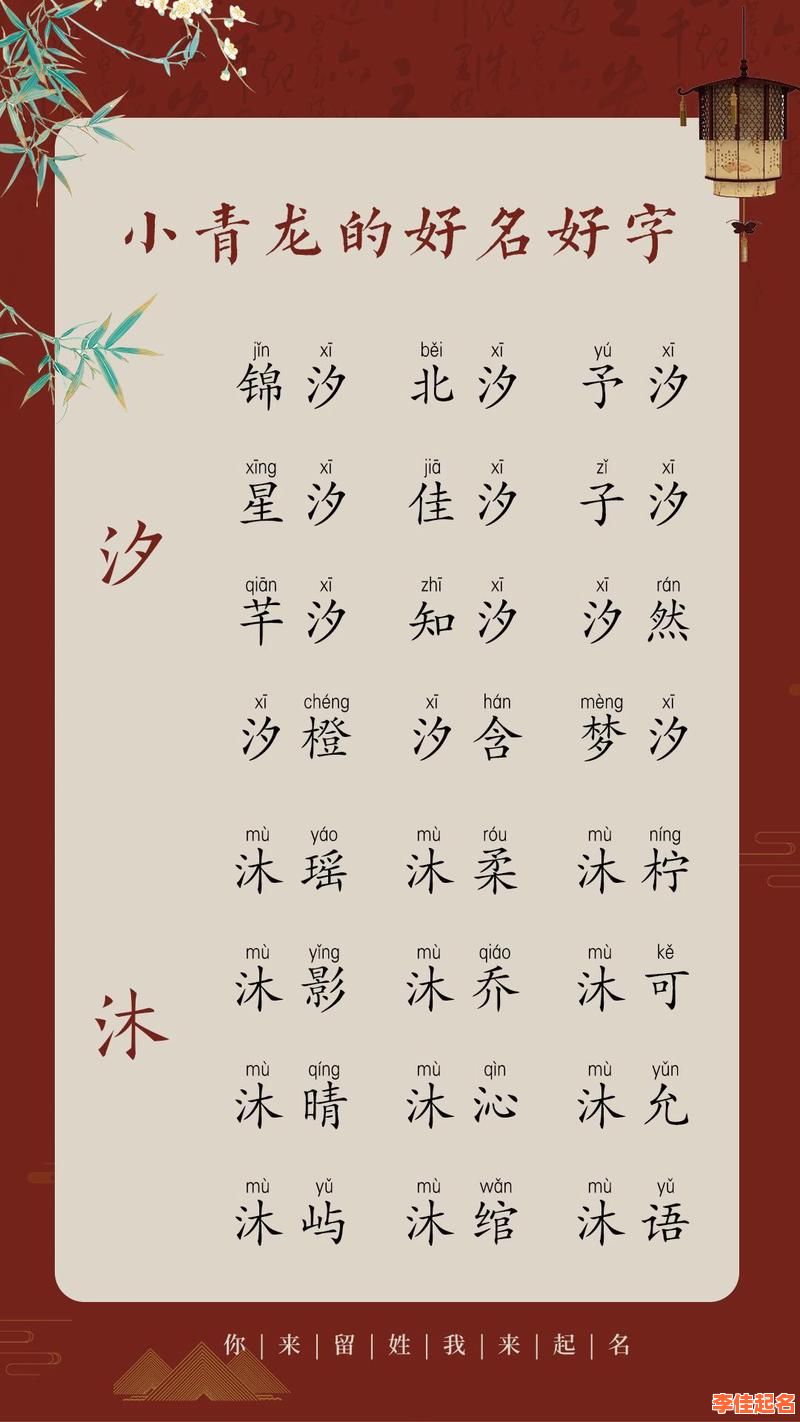 小青龙的好名好字
jǐn xī běi xī yú xī
锦汐 北汐 予汐
xīng xī jiā xī zǐ xī
星汐 佳汐 子汐
汐
qiān xī zhī xī xī rán
芊汐 知汐 汐然
xī chéng xī hán mèng xī
汐橙 汐含 梦汐
mù yáo mù róu mù níng
沐瑶 沐柔 沐柠
mù yǐng mù qiáo mù kě
沐影 沐乔 沐可
沐
mù qíng mù qìn mù yǔn
沐晴 沐沁 沐允
mù yǔ mù wǎn mù yǔ
沐屿 沐绾 沐语
你|来|留|姓|我|来|起|名
李佳起名